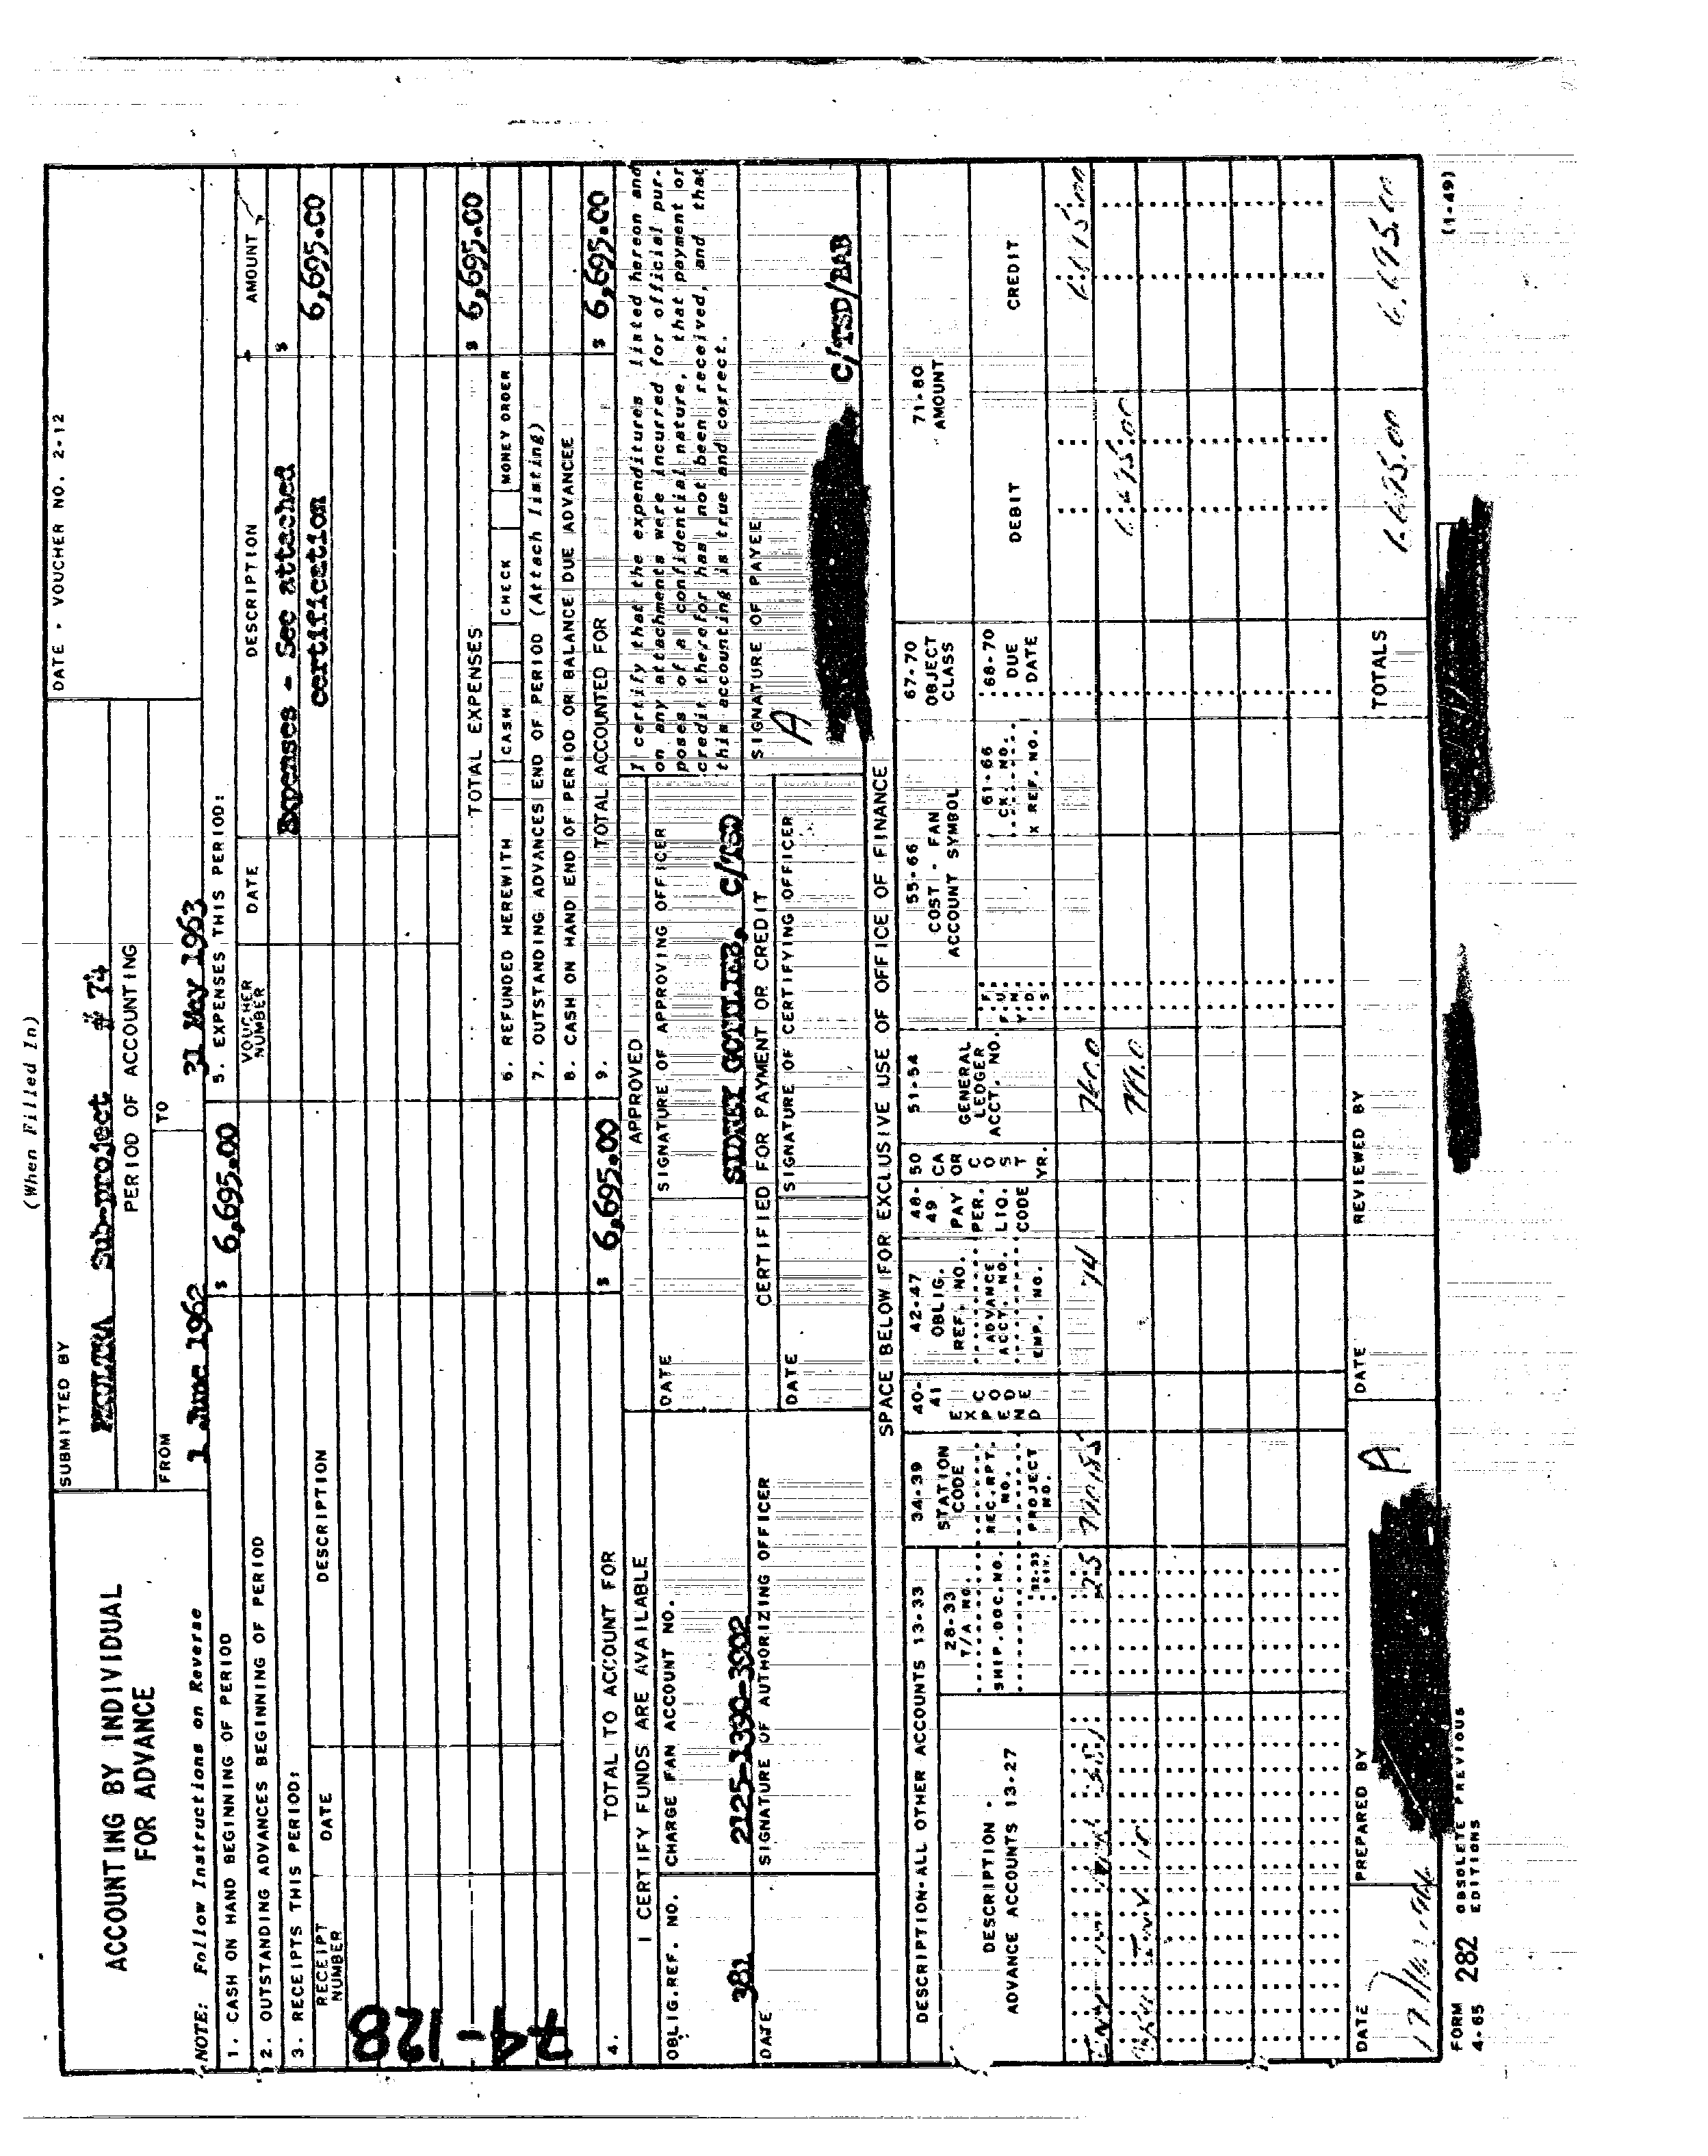 (When Filled In)
ACCOUNTING BY INDIVIDUAL
FOR ADVANCE
NOTE: Follow Instructions on Reverse
SUBMITTED BY
MKULTRA Sub-project # 74
DATE - VOUCHER NO. 2-12
PERIOD OF ACCOUNTING
FROM
1 June 1962
TO
31 May 1963
1. CASH ON HAND BEGINNING OF PERIOD
$ 6,695.00
2. OUTSTANDING ADVANCES BEGINNING OF PERIOD
3. RECEIPTS THIS PERIOD:
RECEIPT NUMBER
DATE
DESCRIPTION
5. EXPENSES THIS PERIOD:
VOUCHER NUMBER
DATE
DESCRIPTION
AMOUNT
Expenses - See attached $
certification 6,695.00
TOTAL EXPENSES $ 6,695.00
6. REFUNDED HEREWITH CASH CHECK MONEY ORDER
7. OUTSTANDING ADVANCES END OF PERIOD (Attach listing)
8. CASH ON HAND END OF PERIOD OR BALANCE DUE ADVANCEE
4. TOTAL TO ACCOUNT FOR $ 6,695.00
9. TOTAL ACCOUNTED FOR $ 6,695.00
74-128
I CERTIFY FUNDS ARE AVAILABLE
OBLIG.REF. NO.
381
CHARGE FAN ACCOUNT NO.
2125-1390-3902
DATE
SIGNATURE OF AUTHORIZING OFFICER
APPROVED
DATE
SIGNATURE OF APPROVING OFFICER
SIDNEY GOTTLIEB, C/TSD
CERTIFIED FOR PAYMENT OR CREDIT
DATE
SIGNATURE OF CERTIFYING OFFICER
I certify that the expenditures listed hereon and
on any attachments were incurred for official pur-
poses of a confidential nature, that payment or
credit therefor has not been received, and that
this accounting is true and correct.
SIGNATURE OF PAYEE
A
C/TSD/BAB
SPACE BELOW FOR EXCLUSIVE USE OF OFFICE OF FINANCE
DESCRIPTION-ALL OTHER ACCOUNTS 13-33
DESCRIPTION -
ADVANCE ACCOUNTS 13-27
28-33
T/A NO.
SHIP.DOC.NO.
32-33
DIV.
34-39
STATION
CODE
REC.RPT.
NO.
PROJECT
NO.
40-
41
EXPEND
CODE
42-47
OBLIG.
REF. NO.
ADVANCE
ACCT. NO.
EMP. NO.
48-
49
PAY
PER.
LIQ.
CODE
50
CA
OR
COST
YR.
51-54
GENERAL
LEDGER
ACCT. NO.
F.
U.
N.
D.
S
55-66
COST - FAN
ACCOUNT SYMBOL
61-66
CK. NO.
X REF. NO.
67-70
OBJECT
CLASS
68-70
DUE
DATE
71-80
AMOUNT
DEBIT
CREDIT
25
74
DATE
PREPARED BY
A
DATE
REVIEWED BY
TOTALS
6695.00
6,695.00
FORM
4-65
282
OBSOLETE PREVIOUS
EDITIONS
(1-49)